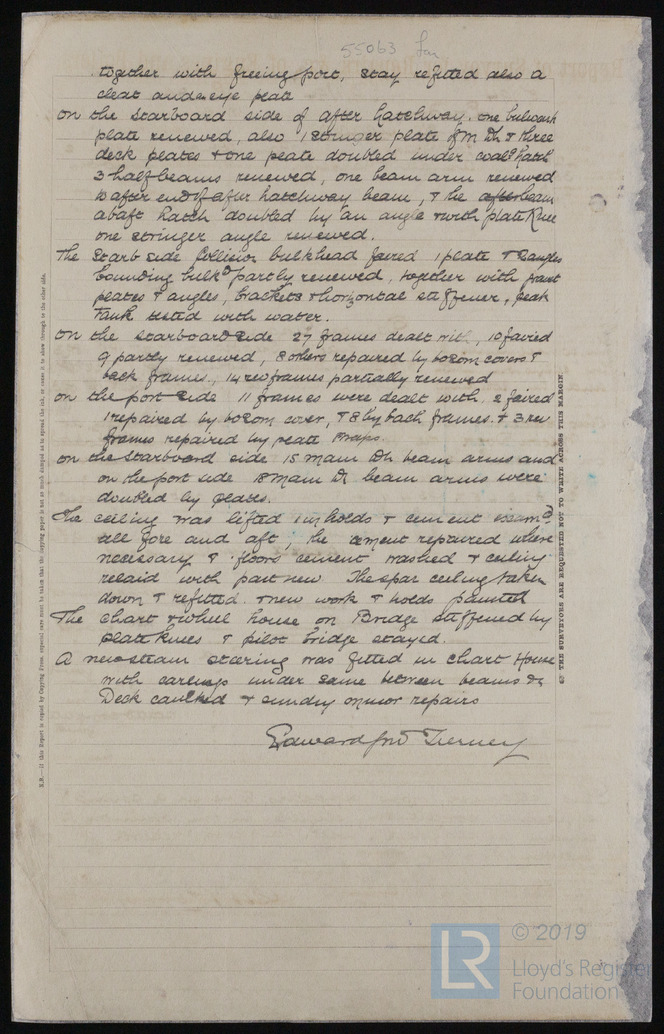 55063
together with freeing port, stay refitted also a
cleat and an eye plate
On the Starboard side of after hatchway. one bulwark
plate renewed, also 1 Stringer plate of m Dk & three
deck plates & one plate doubled under coal hatch
3 half beams renewed, one beam arm renewed
to after end of after hatchway beam, & the after beam
abaft hatch doubled by an angle & with plate Knee
one stringer angle renewed.
The Starb side Collision bulkhead faired 1 plate & 2 angles
bounding bulkd partly renewed, together with
plates & angles, brackets & horizontal stiffener, peak
Tank tested with water.
On the starboard side 27 frames dealt with, 10 faired
9 partly renewed, 8 others repaired by bosom covers &
back frames, 14 rev frames partially renewed
On the port side 11 frames were dealt with. 2 faired
1 repaired by bosom cover, & 8 by back frames. & 3 rev
frames repaired by plate straps.
On the Starboard side 15 main Dk beam arms and
on the port side 18 main Dk beam arms were
doubled by plates.
The ceiling was lifted in holds & cement examd
all fore and aft, the cement repaired where
necessary & floors cement washed & ceiling
relaid with part new. The spar ceiling taken
down & refitted. & new work & holds painted
The chart & wheel house on Bridge stiffened by
plate knees & pilot bridge stayed.
A new steam steering was fitted in Chart House
with carlings under same between beams &c
Deck caulked & sundry minor repairs
Edward Jno Tierney
N.B.—If this Report is copied by Copying Press, especial care must be taken that the Copying paper is not so much damped as to spread the ink, or cause it to show through to the other side.
THE SURVEYORS ARE REQUESTED NOT TO WRITE ACROSS THIS MARGIN
LR
© 2019
Lloyd's Register
Foundation